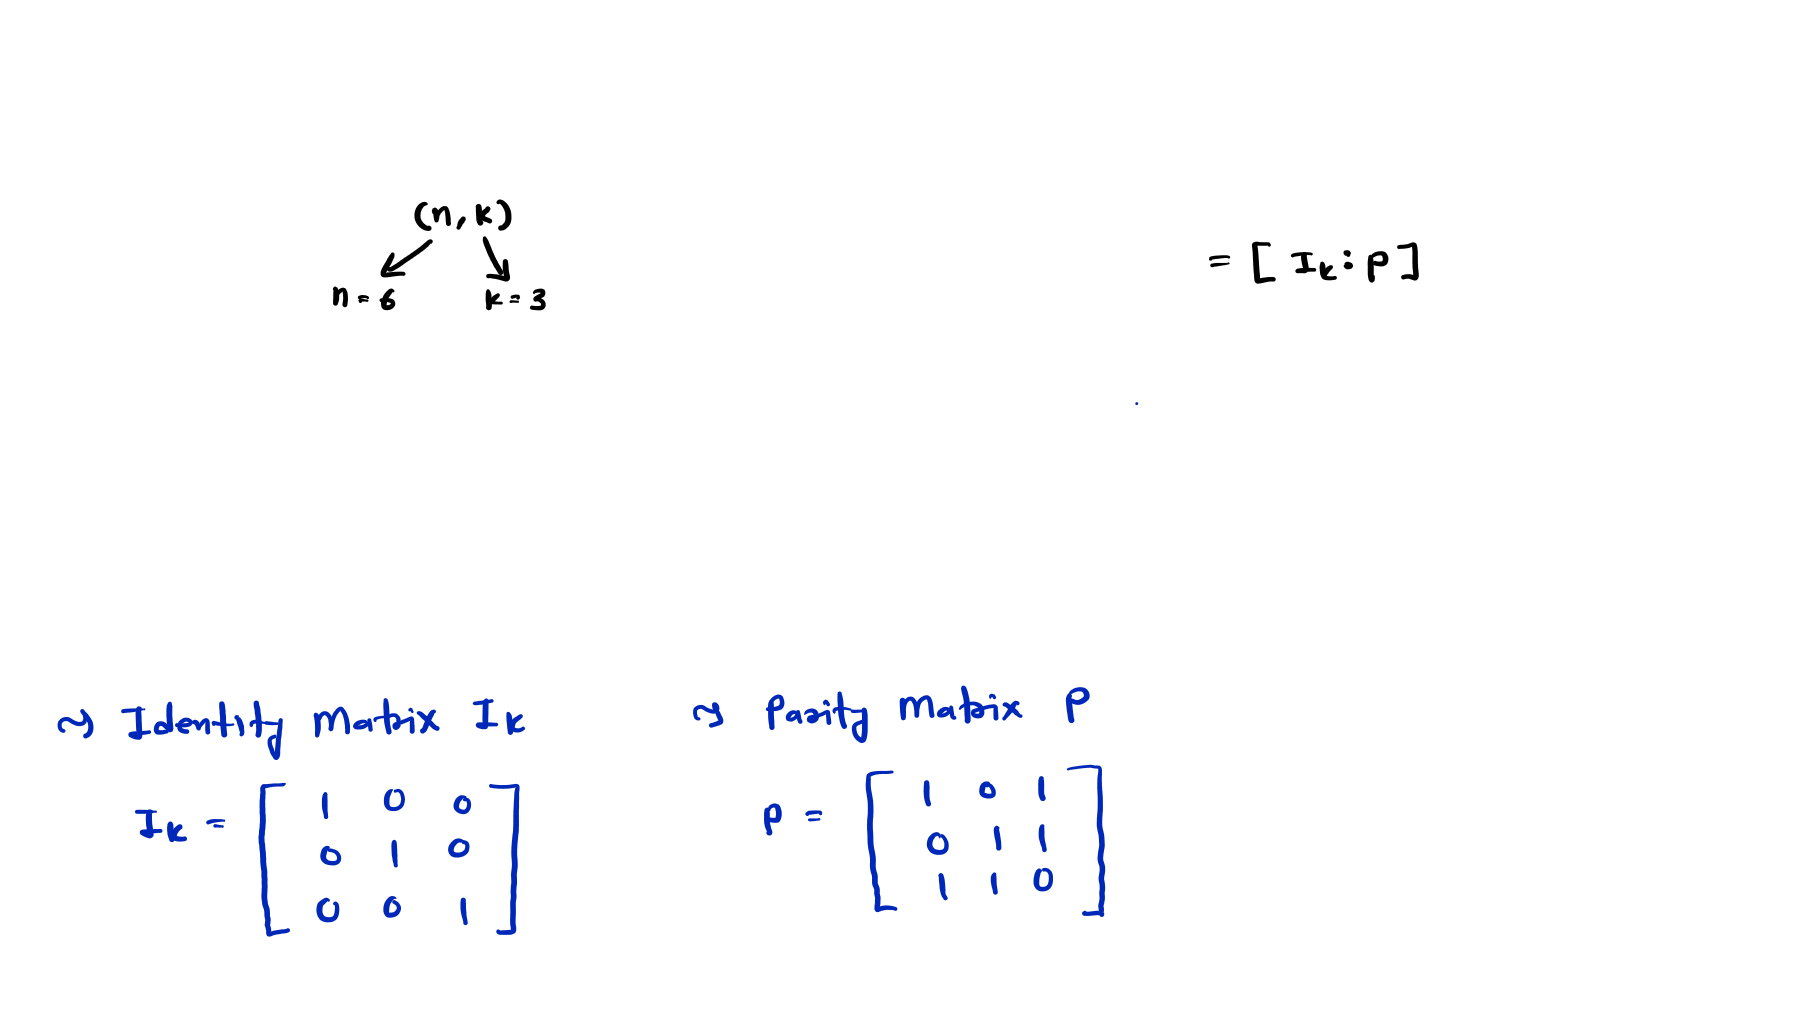 (n, k)
n = 6 k = 3
= [ Ik : P ]
~> Identity Matrix Ik
Ik = [ 1 0 0
0 1 0
0 0 1 ]
~> Parity Matrix P
P = [ 1 0 1
0 1 1
1 1 0 ]